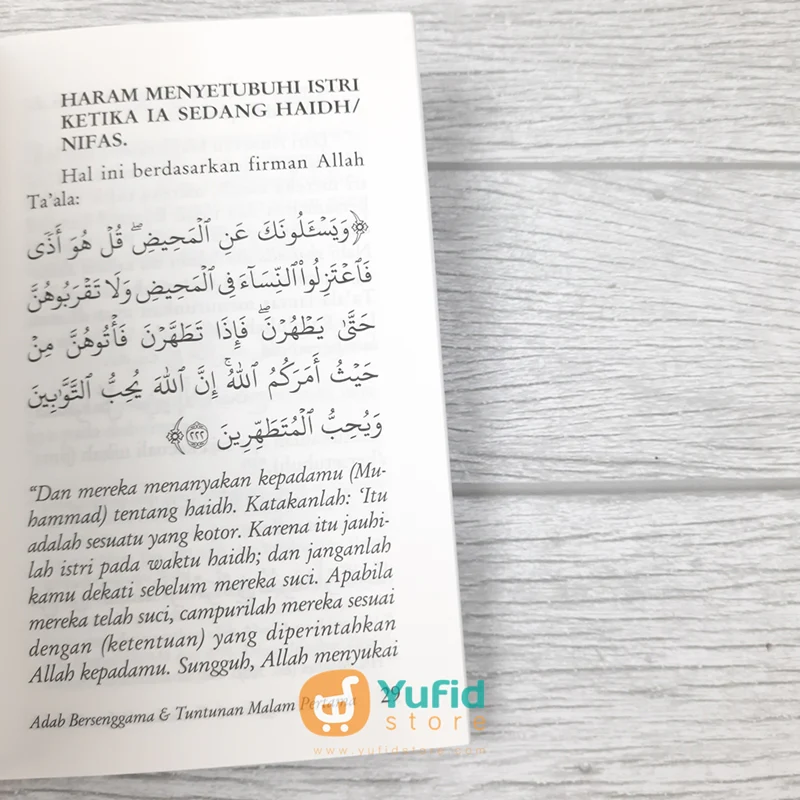 HARAM MENYETUBUHI ISTRI
KETIKA IA SEDANG HAIDH/
NIFAS.
Hal ini berdasarkan firman Allah
Ta'ala:
﴿وَيَسْـَٔلُونَكَ عَنِ ٱلْمَحِيضِ ۖ قُلْ هُوَ أَذًى
فَٱعْتَزِلُوا۟ ٱلنِّسَآءَ فِى ٱلْمَحِيضِ وَلَا تَقْرَبُوهُنَّ
حَتَّىٰ يَطْهُرْنَ ۖ فَإِذَا تَطَهَّرْنَ فَأْتُوهُنَّ مِنْ
حَيْثُ أَمَرَكُمُ ٱللَّهُ ۚ إِنَّ ٱللَّهَ يُحِبُّ ٱلتَّوَّٰبِينَ
وَيُحِبُّ ٱلْمُتَطَهِّرِينَ ٢٢٢﴾
"Dan mereka menanyakan kepadamu (Mu-
hammad) tentang haidh. Katakanlah: 'Itu
adalah sesuatu yang kotor. Karena itu jauhi-
lah istri pada waktu haidh; dan janganlah
kamu dekati sebelum mereka suci. Apabila
mereka telah suci, campurilah mereka sesuai
dengan (ketentuan) yang diperintahkan
Allah kepadamu. Sungguh, Allah menyukai
Adab Bersenggama & Tuntunan Malam Pertama 29
Yufid
store
www.yufidstore.com